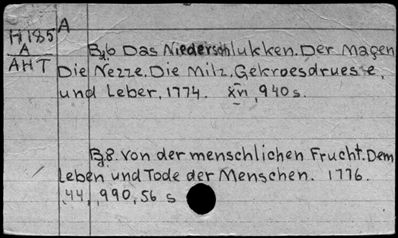 H 185 A
A
AHT
Bd 6 Das Niederschlukken. Der Magen
Die Nezze. Die Milz. Gekroesdruese,
und Leber, 1774. XVI, 940 s.
Bd 8. Von der menschlichen Frucht. Dem
Leben und Tode der Menschen. 1776.
44, 990, 56 s